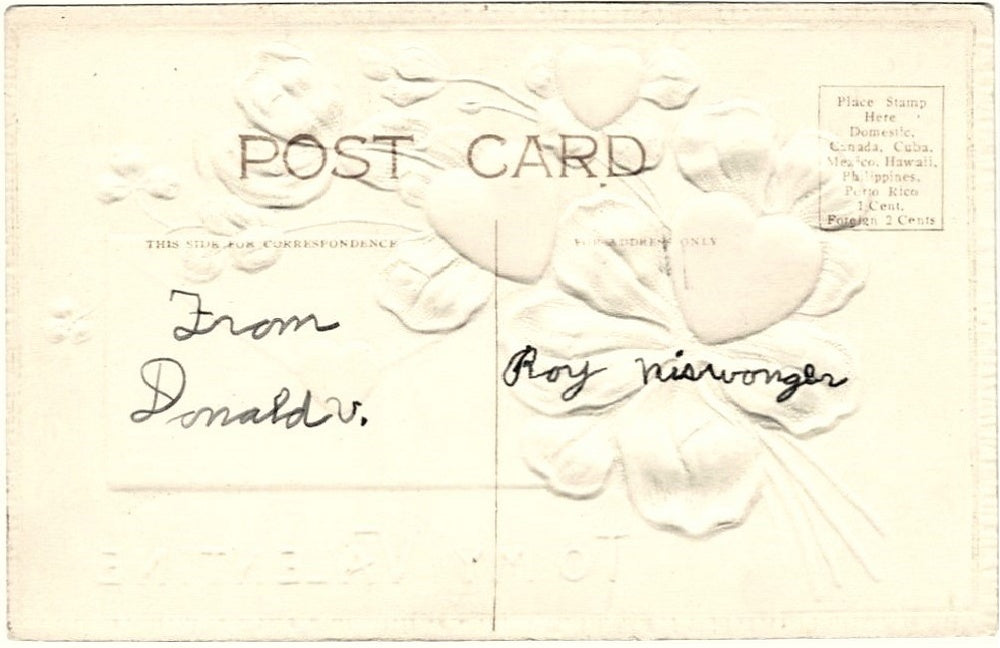 POST CARD
Place Stamp
Here
Domestic,
Canada, Cuba,
Mexico, Hawaii,
Philippines,
Porto Rico
1 Cent.
Foreign 2 Cents
THIS SIDE FOR CORRESPONDENCE
FOR ADDRESS ONLY
From
Donald v.
Roy Niswonger
TO MY VALENTINE